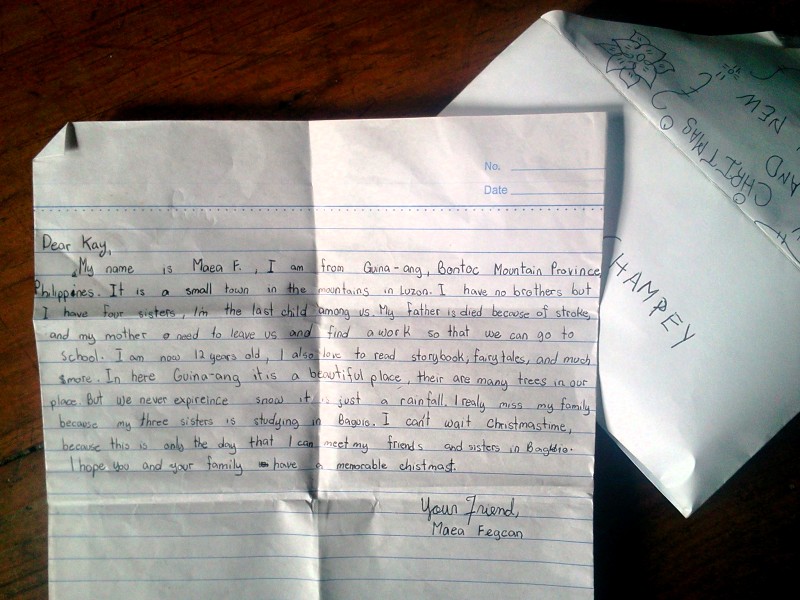 No.
Date
Dear Kay,
My name is Maea F., I am from Guina-ang, Bontoc Mountain Province
Philippines. It is a small town in the mountains in Luzon. I have no brothers but
I have four sisters, I'm the last child among us. My Father is died because of stroke,
and my mother need to leave us and find a work so that we can go to
school. I am now 12 years old, I also love to read storybook, fairytales, and much
more. In here Guina-ang it is a beautiful place, their are many trees in our
place. But we never expireince snow it is just a rainfall. I realy miss my family
because my three sisters is studying in Baguio. I can't wait Christmastime,
because this is only the day that I can meet my friends and sisters in Baguio.
I hope you and your family have a memorable chistmast.
Your Friend,
Maea Fegcan
CHRITMAS
AND
NEW
HAMPEY